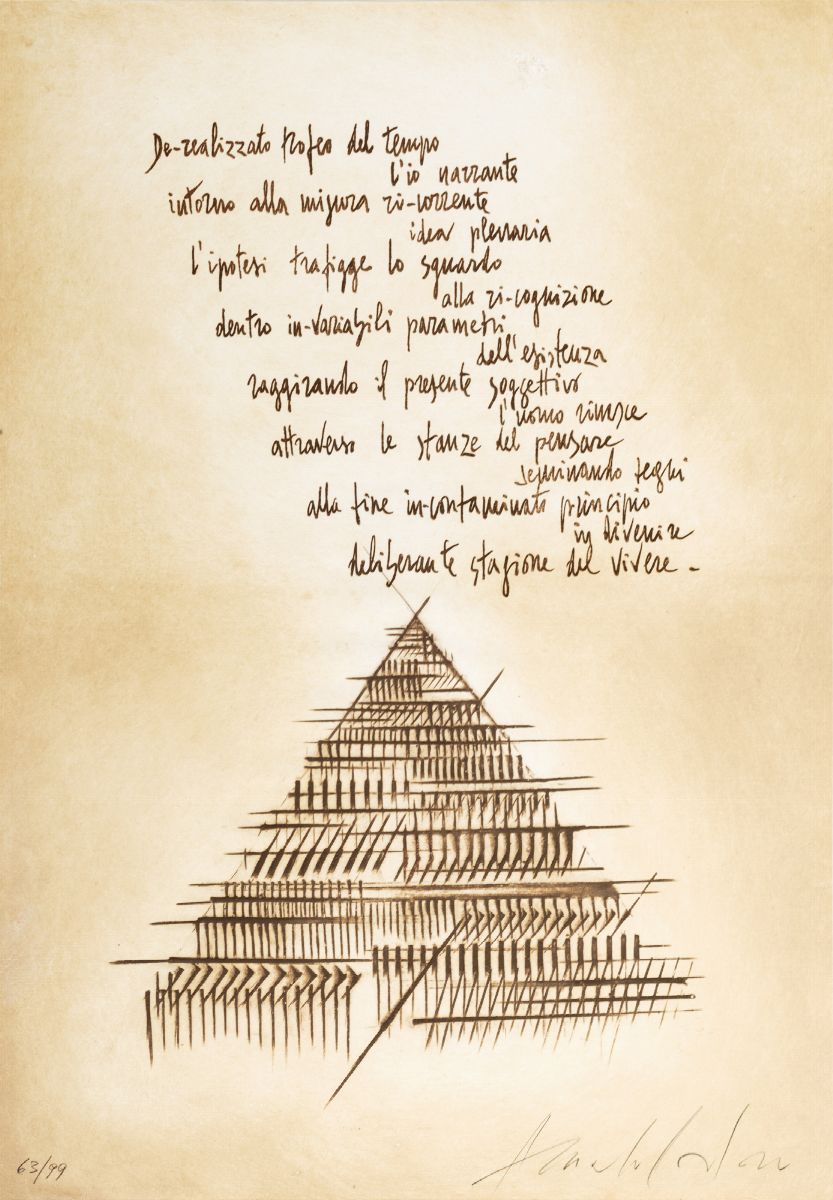 De-realizzato trofeo del tempo
l'io narrante
intorno alla misura ri-corrente
idea plenaria
l'ipotesi trafigge lo sguardo
alla ri-cognizione
dentro in-variabili parametri
dell'esistenza
raggirando il presente soggettivo
l'uomo riunsce
attraverso le stanze del pensare
seminando segni
alla fine in-contaminato principio
in divenire
deliberante stagione del vivere -
63/99
Arnaldo